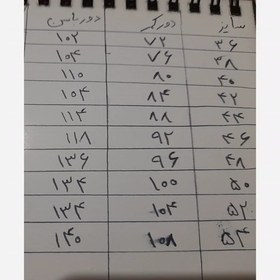 سایز دور کمر دور باسن
۳۶ ۷۲ ۱۰۲
۳۸ ۷۶ ۱۰۴
۴۰ ۸۰ ۱۱۰
۴۲ ۸۴ ۱۰۴
۴۴ ۸۸ ۱۱۴
۴۶ ۹۲ ۱۱۸
۴۸ ۹۶ ۱۳۶
۵۰ ۱۰۰ ۱۳۴
۵۲ ۱۰۴ ۱۳۴
۵۴ ۱۰۸ ۱۴۰